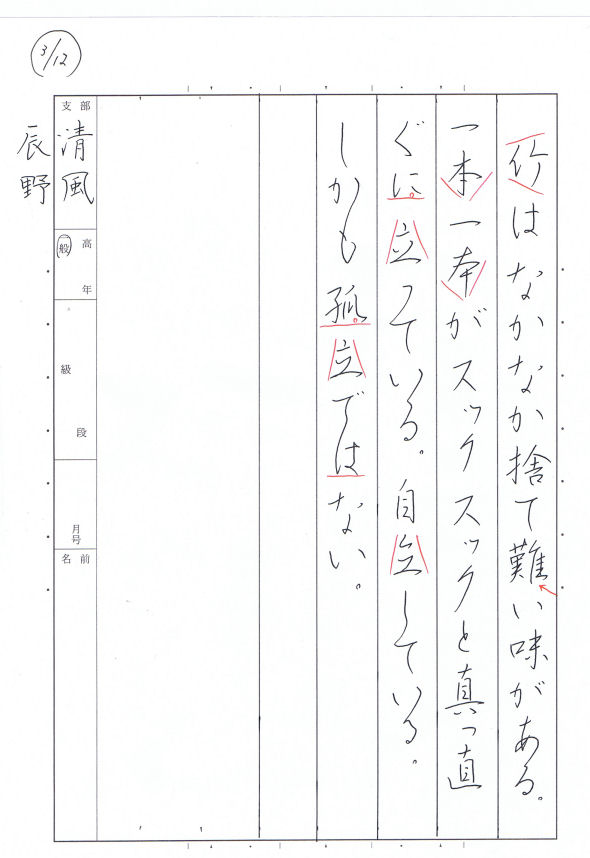 3/12
竹はなかなか捨て難い味がある。
一本一本がスックスックと真っ直
ぐに立っている。自立している。
しかも孤立ではない。
支部
清風
高
般
年
級
段
月号
名前
辰野